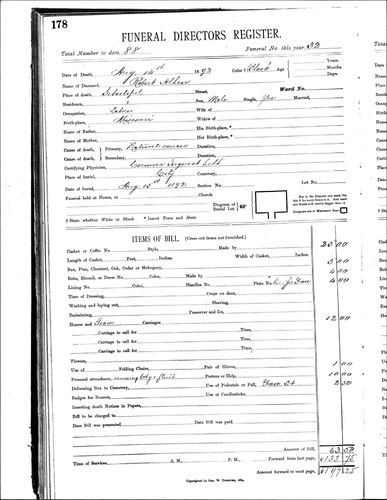 178
FUNERAL DIRECTORS REGISTER.
Total Number to date, 88 Funeral No. this year, 32
Date of Death, Aug. 14th 1892 Color† Black Age Years. Months. Days.
Name of Deceased, Robert
Place of death, Sebastopol Street. Ward No.
Residence, " Sex, Male Single, Yes Married,
Occupation, Labor Wife of
Birth-place, Missouri Widow of
Name of Father, His Birth-place, *
Name of Mother, Her Birth-place, *
Cause of death, Primary, Natural causes Duration,
Cause of death, Secondary, Duration,
Certifying Physician, Coroner Inquest Held
Place of burial, City Cemetery,
Date of burial, Aug 15th 1892 Section No. Lot No.
Funeral held at House, or Church.
Diagram of Burial Lot.
† State whether White or Black. * Insert Town and State.
ITEMS OF BILL. (Cross out items not furnished.)
Casket or Coffin No. Style, Made by 20 00
Length of Casket, Feet, Inches. Width of Casket, Inches. 5 00
Box, Pine, Chestnut, Oak, Cedar or Mahogany, 4 00
Robe, Shroud, or Dress No. Color, Made by 4 00
Lining No. Color, Handles No. Plate No.
Time of Dressing, Crape on door,
Washing and laying out, Shaving,
Embalming, Preserver and Ice,
Hearse and Team Carriages. 12 00
Carriage to call for Time,
Carriage to call for Time,
Carriage to call for Time,
Flowers,
Use of Folding Chairs, Pair of Gloves, 1 00
Personal attendance, removing body & fluid Porters or Help, 10 00
Delivering Box to Cemetery, Use of Pedestals or Pall, Grave 2 50
Badges for Bearers, Use of Candlesticks,
Inserting death Notices in Papers,
Bill to be charged to
Date Bill was presented Date Bill was paid
Amount of Bill, 63 50
Forward from last page, 133 75
Time of Service, A. M., P. M., Amount forward to next page, $197 25
Copyrighted by Geo. W.